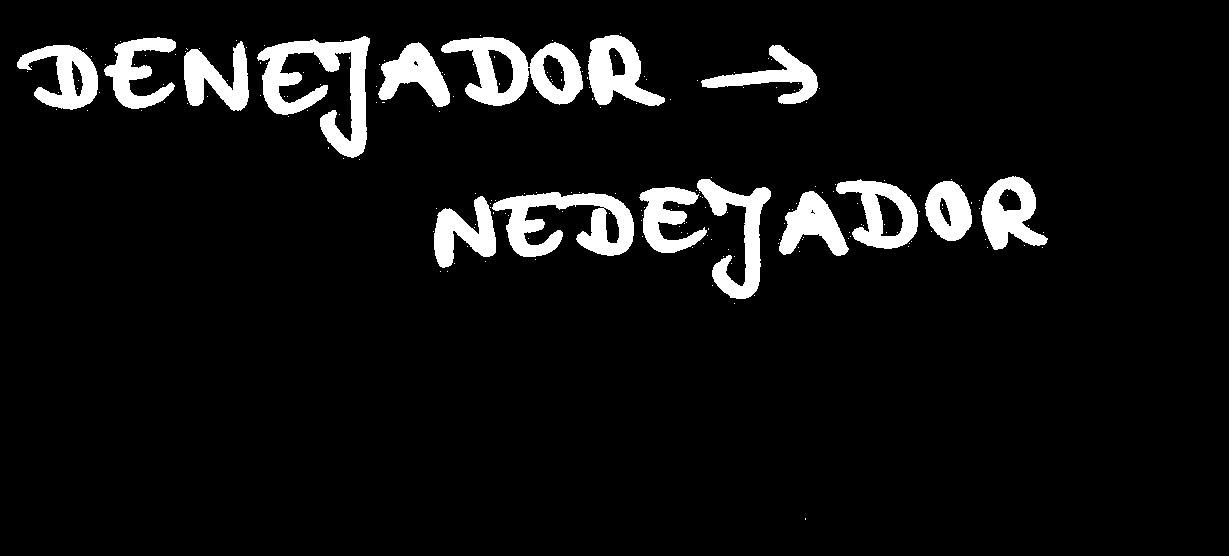 DENEJADOR →
NEDEJADOR